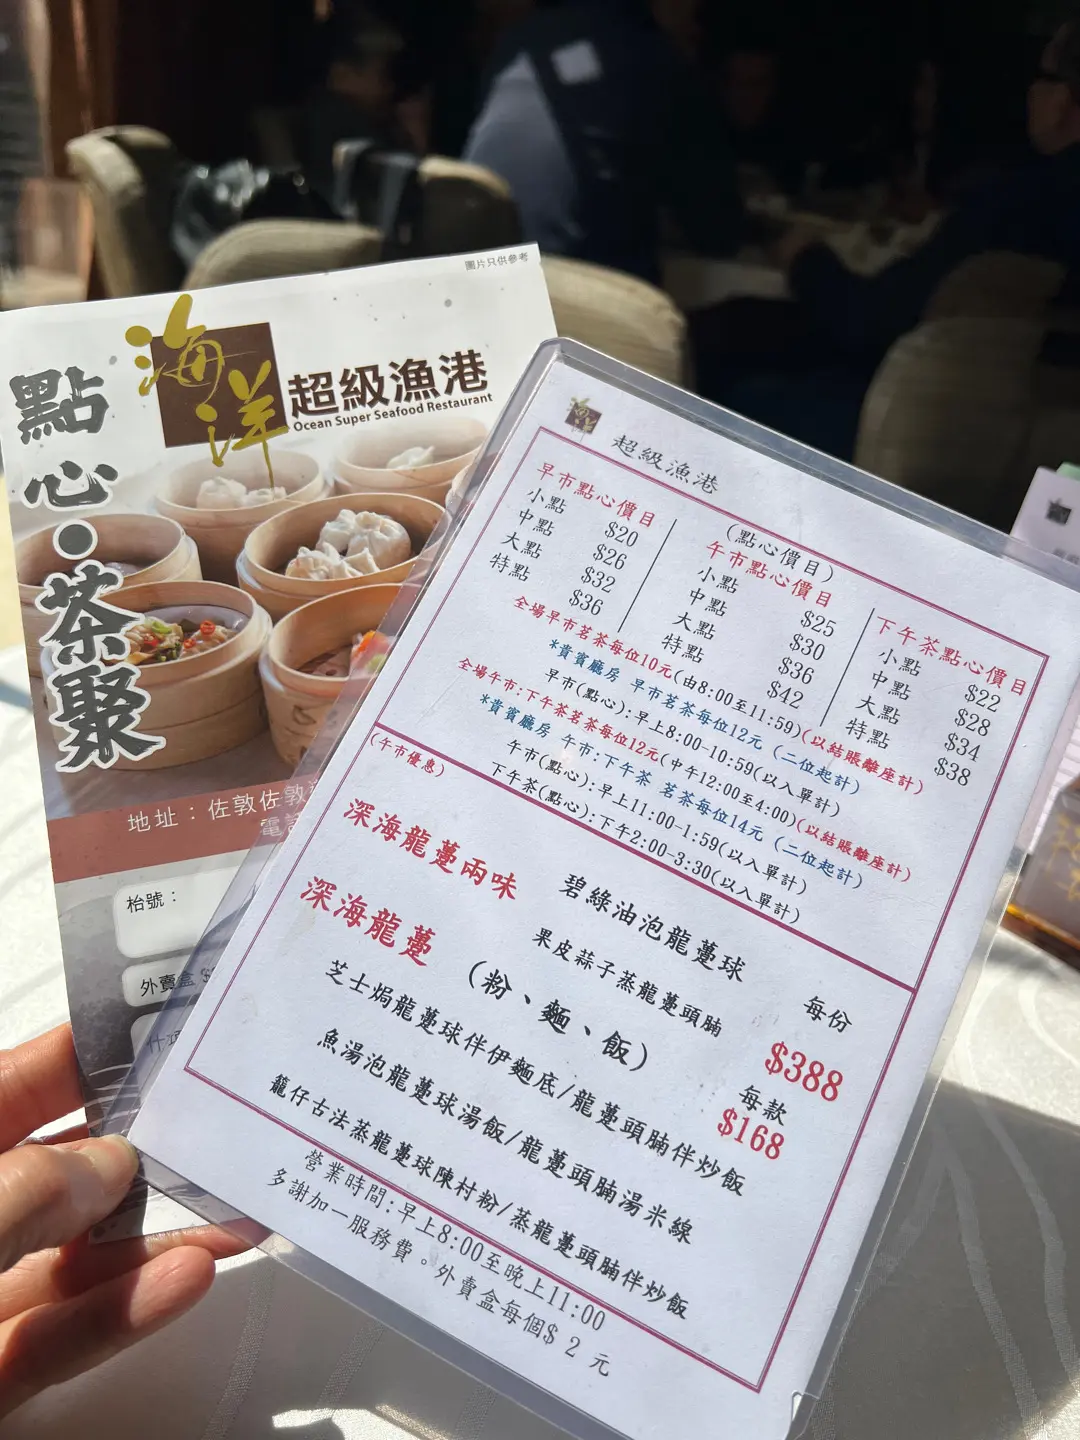 圖片只供參考
海洋
超級漁港
Ocean Super Seafood Restaurant
點心·茶聚
地址：佐敦佐敦
電話
枱號：
外賣盒 $
什項
海洋
超級漁港
(點心價目)
早市點心價目
小點 $20
中點 $26
大點 $32
特點 $36
午市點心價目
小點 $25
中點 $30
大點 $36
特點 $42
下午茶點心價目
小點 $22
中點 $28
大點 $34
特點 $38
全場早市茗茶每位10元(由8:00至11:59)(以結賬離座計)
*貴賓廳房 早市茗茶每位12元 (二位起計)
早市(點心):早上8:00-10:59(以入單計)
全場午市:下午茶茗茶每位12元(中午12:00至4:00)(以結賬離座計)
*貴賓廳房 午市:下午茶 茗茶每位14元 (二位起計)
午市(點心):早上11:00-1:59(以入單計)
下午茶(點心):下午2:00-3:30(以入單計)
(午市優惠)
深海龍躉兩味 碧綠油泡龍躉球 每份
果皮蒜子蒸龍躉頭腩 $388
深海龍躉 (粉、麵、飯) 每款
$168
芝士焗龍躉球伴伊麵底/龍躉頭腩伴炒飯
魚湯泡龍躉球湯飯/龍躉頭腩湯米線
籠仔古法蒸龍躉球陳村粉/蒸龍躉頭腩伴炒飯
營業時間:早上8:00至晚上11:00
多謝加一服務費。外賣盒每個$ 2 元